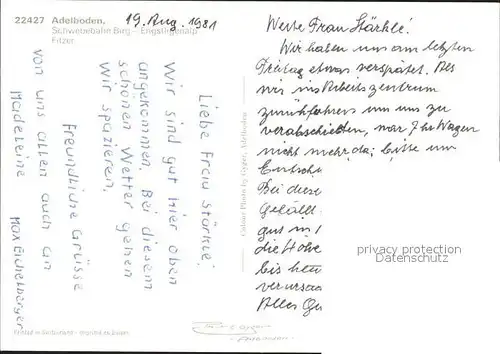 22427 Adelboden.
Schwebebahn Birg – Engstligenalp
Fitzer
19. Aug. 1981
Liebe Frau Stärkle!
Wir sind gut hier oben
angekommen. Bei diesem
schönen Wetter gehen
wir spazieren.
Freundliche Grüsse
von uns allen auch an
Madeleine
Max Eichelberger
Colour Photo by Gyger, Adelboden
Werte Frau Stärkle!
Wir haben uns am letzten
Freitag etwas verspätet. Als
wir ins Arbeitszentrum
zurückfuhren um uns zu
verabschieden, war Ihr Wagen
nicht mehr da; bitte um
Entsch
Bei diese
Gefäll
gut in
die Höhe
bis heu
verursa
Alles Gu
privacy protection
Datenschutz
Printed in Switzerland